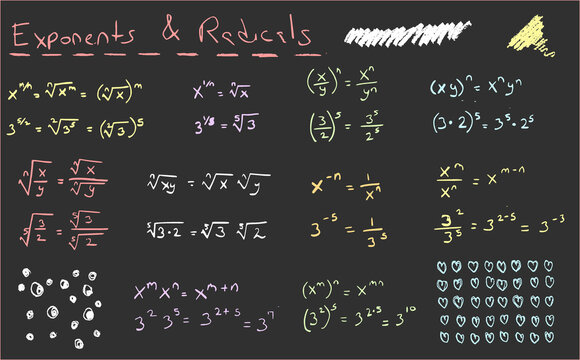 Exponents & Radicals
x^{m/n} = ⁿ√x^m = (ⁿ√x)^m
3^{5/2} = ²√3^5 = (²√3)^5
x^{1/n} = ⁿ√x
3^{1/5} = ⁵√3
(x/y)^n = x^n/y^n
(3/2)^5 = 3^5/2^5
(xy)^n = x^n y^n
(3·2)^5 = 3^5·2^5
ⁿ√(x/y) = ⁿ√x/ⁿ√y
⁵√(3/2) = ⁵√3/⁵√2
ⁿ√xy = ⁿ√x ⁿ√y
⁵√3·2 = ⁵√3 ⁵√2
x^{-n} = 1/x^n
3^{-5} = 1/3^5
x^m/x^n = x^{m-n}
3^2/3^5 = 3^{2-5} = 3^{-3}
x^m x^n = x^{m+n}
3^2 3^5 = 3^{2+5} = 3^7
(x^m)^n = x^{mn}
(3^2)^5 = 3^{2·5} = 3^{10}